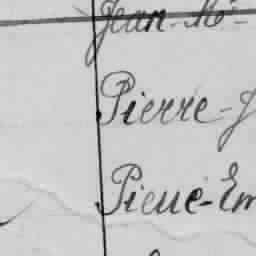 Jean-Me-
Pierre-J
Pierre-Em